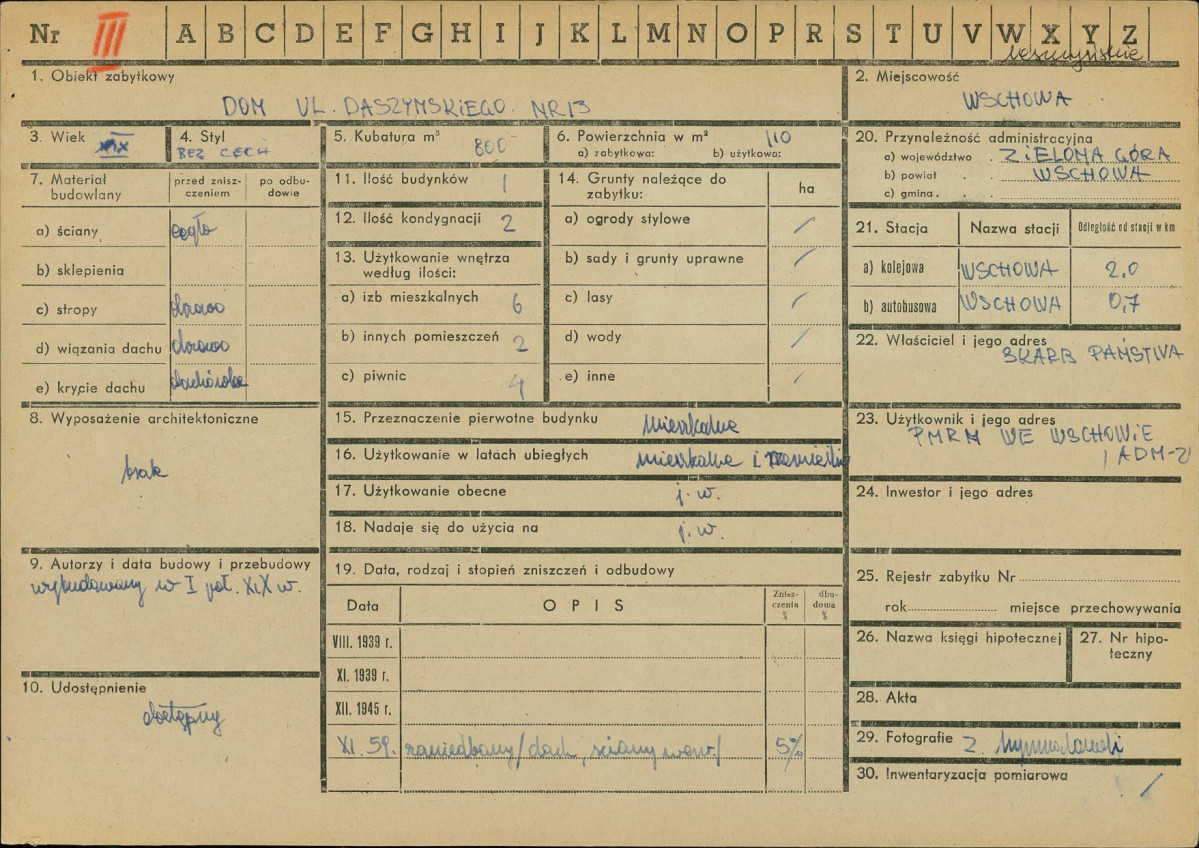 Nr III A B C D E F G H I J K L M N O P R S T U V W X Y Z
leszczyńskie
1. Obiekt zabytkowy
DOM UL. DASZYŃSKIEGO NR 13
2. Miejscowość
WSCHOWA
3. Wiek XIX
4. Styl
BEZ CECH
5. Kubatura m³ 800
6. Powierzchnia w m² 110
a) zabytkowa: b) użytkowa:
20. Przynależność administracyjna
a) województwo . ZIELONA GÓRA
b) powiat . . WSCHOWA
c) gmina . .
7. Materiał budowlany
przed znisz-
czeniem
po odbu-
dowie
a) ściany cegła
b) sklepienia
c) stropy drewno
d) wiązania dachu drewno
e) krycie dachu dachówka
11. Ilość budynków 1
12. Ilość kondygnacji 2
13. Użytkowanie wnętrza
według ilości:
a) izb mieszkalnych 6
b) innych pomieszczeń 2
c) piwnic 4
14. Grunty należące do
zabytku: ha
a) ogrody stylowe /
b) sady i grunty uprawne /
c) lasy /
d) wody /
e) inne /
21. Stacja Nazwa stacji Odległość od stacji w km
a) kolejowa WSCHOWA 2.0
b) autobusowa WSCHOWA 0,7
22. Właściciel i jego adres
SKARB PAŃSTWA
8. Wyposażenie architektoniczne
brak
15. Przeznaczenie pierwotne budynku mieszkalne
16. Użytkowanie w latach ubiegłych mieszkalne i
17. Użytkowanie obecne j. w.
18. Nadaje się do użycia na j. w.
23. Użytkownik i jego adres
PMRM WE WSCHOWIE
ADM-2
24. Inwestor i jego adres
9. Autorzy i data budowy i przebudowy
wybudowany w I poł. XIX w.
19. Data, rodzaj i stopień zniszczeń i odbudowy
Data OPIS
Znisz-
czenia
%
dbu-
dowa
%
VIII. 1939 r.
XI. 1939 r.
XII. 1945 r.
XI. 59. zaniedbany /dach, ściany wewn./ 5%
10. Udostępnienie
dostępny
25. Rejestr zabytku Nr
rok miejsce przechowywania
26. Nazwa księgi hipotecznej
27. Nr hipo-
teczny
28. Akta
29. Fotografie Z.
30. Inwentaryzacja pomiarowa /